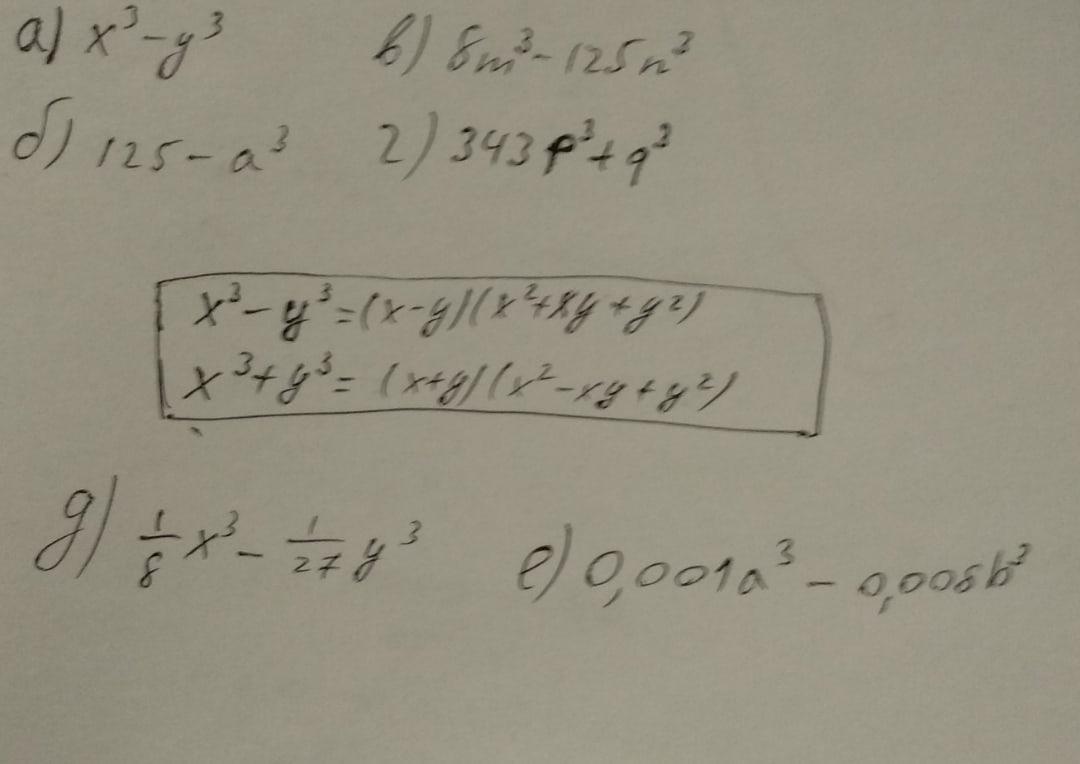 а) x³-y³ в) 8m³-125n³
б) 125-a³ г) 343p³+q³
x³-y³=(x-y)(x²+xy+y²)
x³+y³=(x+y)(x²-xy+y²)
д) 1/8 x³ - 1/27 y³ е) 0,001a³ - 0,008b³